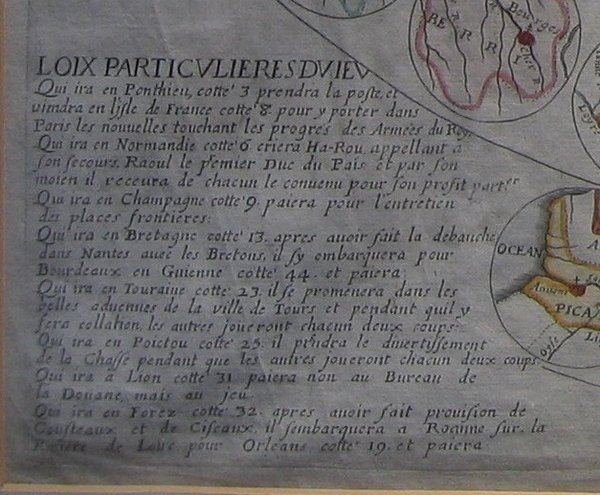 LOIX PARTICVLIERES DV IEV
Qui ira en Ponthieu, cotte' 3 prendra la poste, et
uiendra en l'isle de France cotte' 8 pour y porter dans
Paris les nouuelles touchant les progres des Armées du Roy.
Qui ira en Normandie cotte' 6 criera Ha-Rou, appellant a
son secours, Raoul le premier Duc du Païs et par son
moien il receura de chacun le conuenu pour son profit parter
Qui ira en Champagne cotte' 9. paiera pour l'entretien
des places frontieres.
Qui ira en Bretagne cotte' 13. apres auoir fait la debauche
dans Nantes auec les Bretons, il s'y embarquera pour
Bourdeaux en Guienne cotte' 44. et paiera
Qui ira en Touraine cotte' 23. il se promenera dans les
belles aduenues de la ville de Tours et pendant qu'il y
fera collation, les autres joueront chacun deux coups.
Qui ira en Poictou cotte' 25. il prēdra le diuertissement
de la Chasse pendant que les autres joueront chacun deux coups
Qui ira a Lion cotte' 31 paiera non au Bureau de
la Douane, mais au jeu.
Qui ira en Forez cotte' 32. apres auoir fait prouision de
Cousteaux et de Ciseaux, il s'embarquera a Roanne sur la
Riuiere de Loire pour Orleans cotte' 19. et paiera
Bourges
BERRI
Cher R.
OCEAN
PICA
Oyse